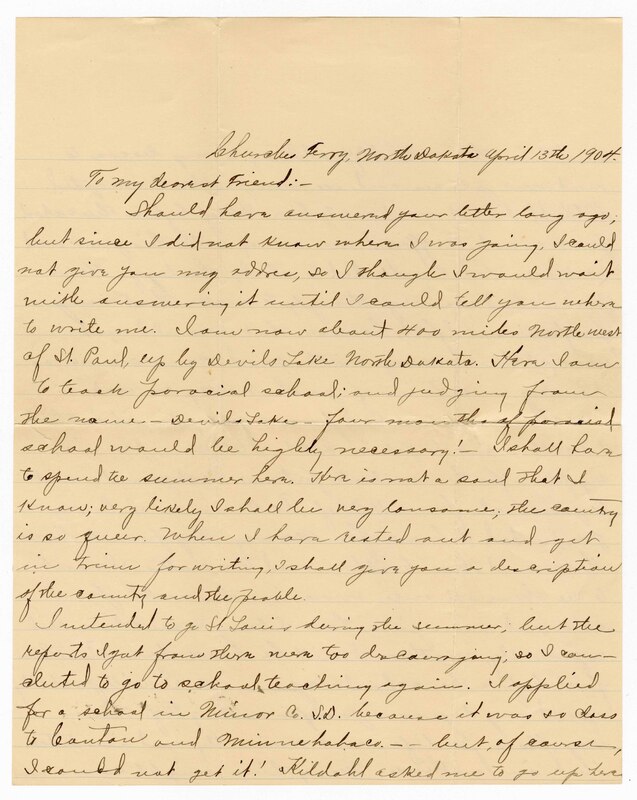 Churches Ferry, North Dakota April 13th 1904.
To my dearest Friend:-
Should have answered your letter long ago;
but since I did not know where I was going, I could
not give you my addres, so I though I would wait
with answering it until I could tell you where
to write me. I am now about 400 miles North west
of St. Paul, up by Devils Lake North Dakota. Here I am
to teach parocial school; and judging from
the name - Devils Lake - four months of parocial
school would be highly necessary! - I shall have
to spend the summer here. Here is not a soul that I
know; very likely I shall be very lonsome; the country
is so queer. When I have rested out and get
in trim for writing, I shall give you a description
of the country and the people.
I intended to go St Louis during the summer; but the
reports I got from there were too discouraging; so I con-
cluted to go to school teaching again. I applied
for a school in Minor Co. S.D. because it was so close
to Canton and Minnehaha co. - - but, of course,
I could not get it! Kildahl asked me to go up here